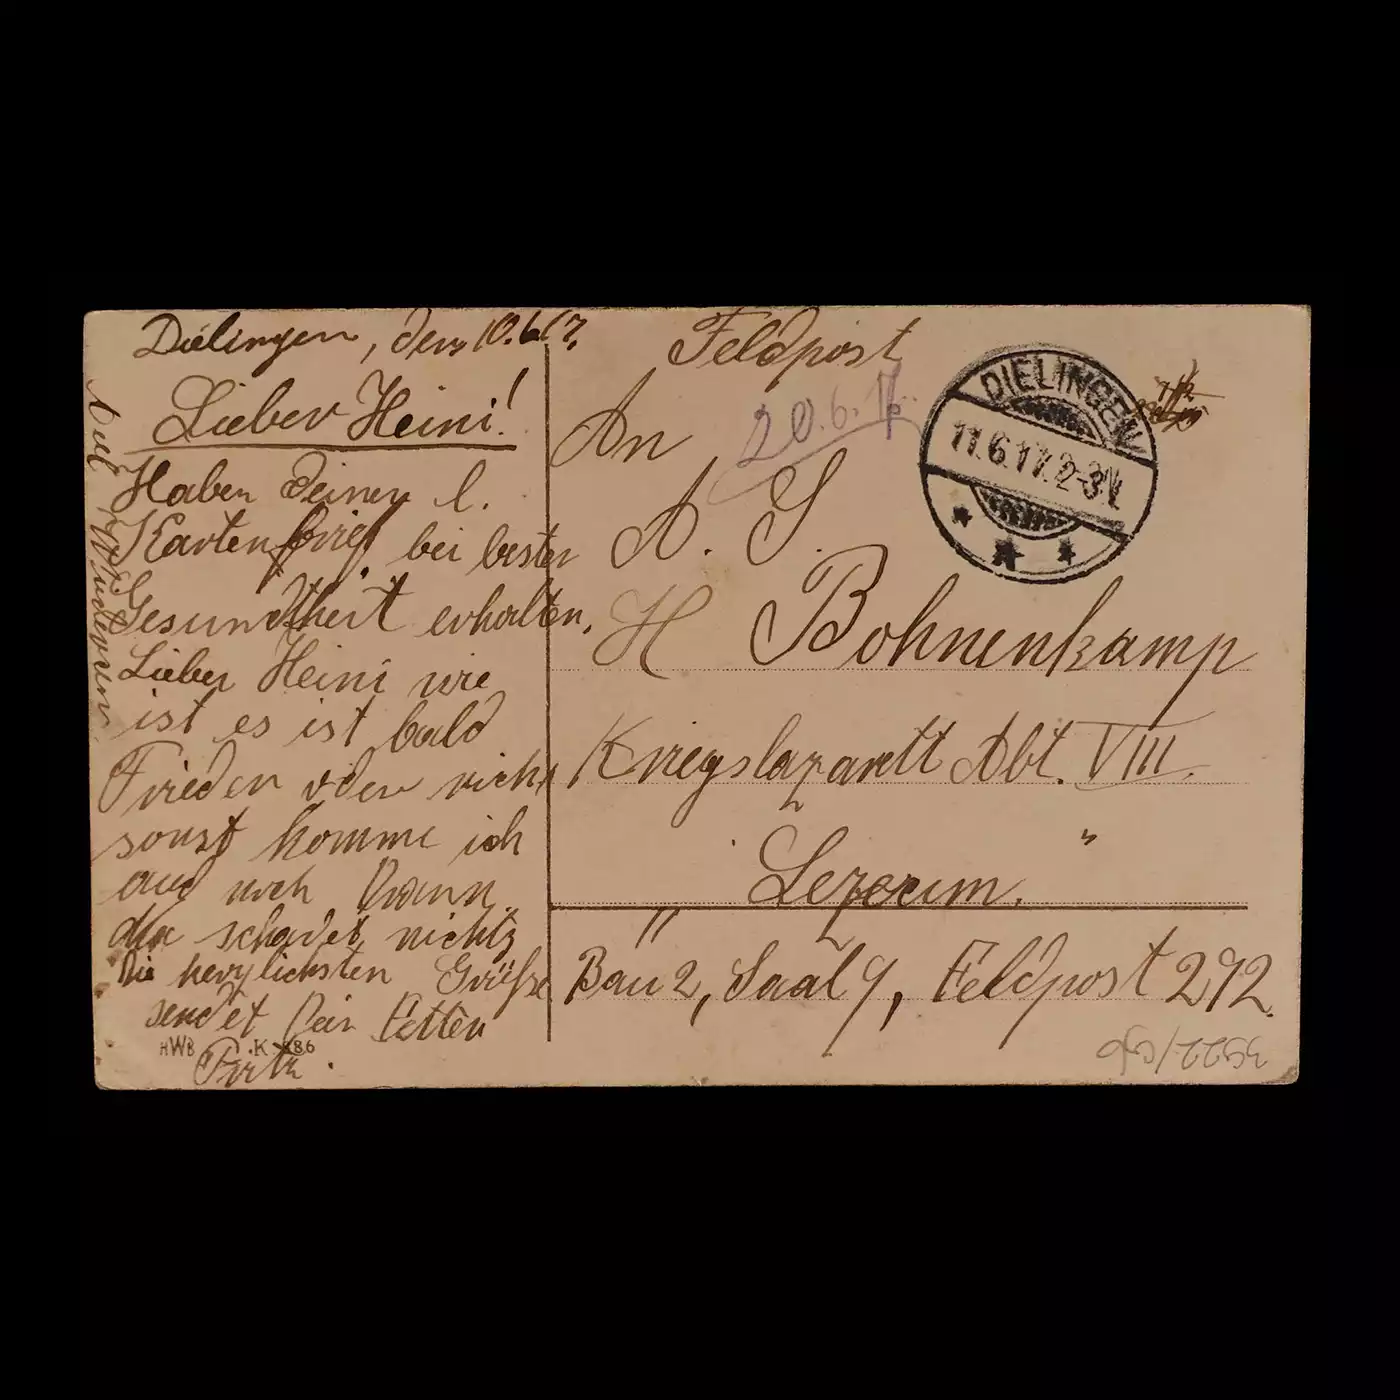 Dielingen, den 10.6.17.
Lieber Heini!
Haben Deinen l.
Kartenbrief bei bester
Gesundtheit erhalten,
Lieber Heini wie
ist es ist bald
Frieden oder nicht
sonst komme ich
auch noch Dran.
das schadet nichts
Die herzlichsten Grüße
sendet Dein Vetter
Fritz.
Auf Wiedersehn
HWB K 886
Feldpost
20.6.17.
An
A. S.
H Bohnenkamp
Kriegslazarett Abt. VIII.
"
Lezoeum.
"
Bau 2, Saal 9, Feldpost 292.
DIELINGEN
11.6.17.2-3N.
3522/56